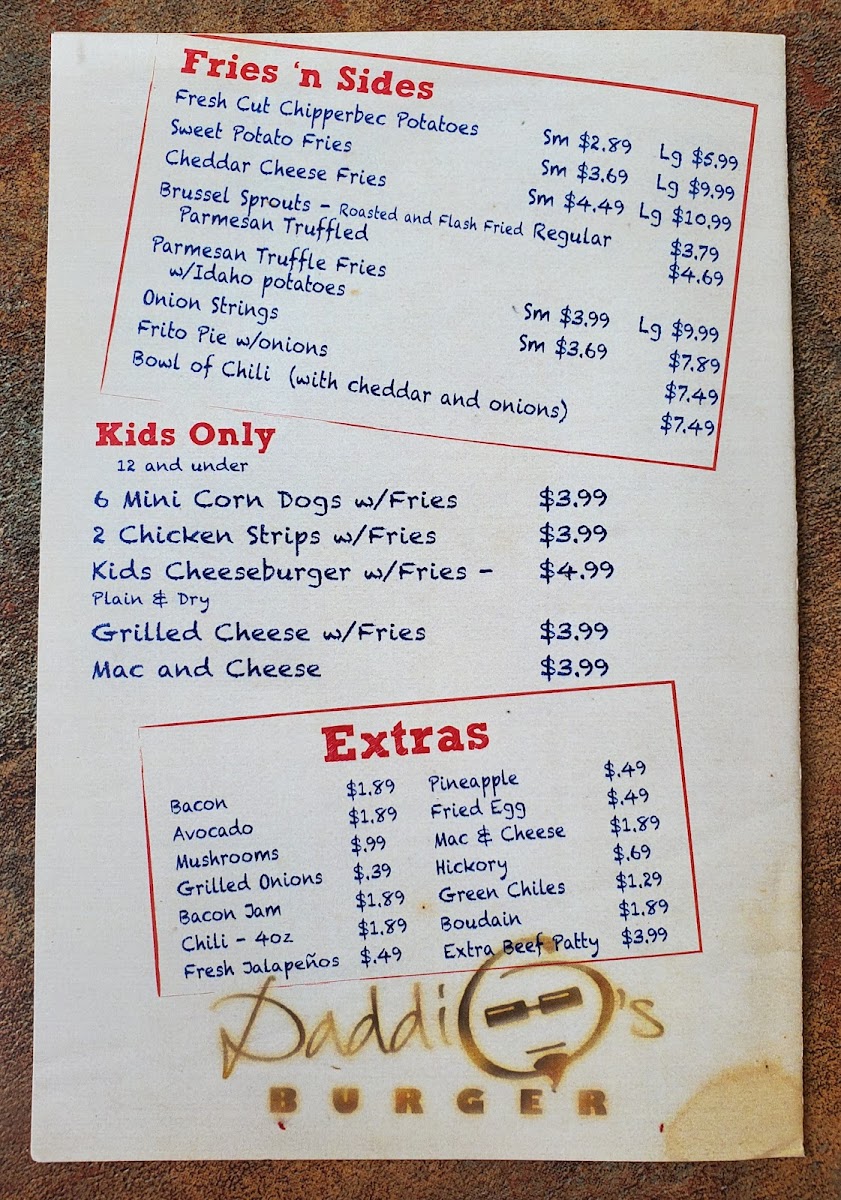 Fries 'n Sides
Fresh Cut Chipperbec Potatoes Sm $2.89 Lg $5.99
Sweet Potato Fries Sm $3.69 Lg $9.99
Cheddar Cheese Fries Sm $4.49 Lg $10.99
Brussel Sprouts - Roasted and Flash Fried Regular $3.79
Parmesan Truffled $4.69
Parmesan Truffle Fries
w/Idaho potatoes Sm $3.99 Lg $9.99
Onion Strings Sm $3.69 $7.89
Frito Pie w/onions $7.49
Bowl of Chili (with cheddar and onions) $7.49
Kids Only
12 and under
6 Mini Corn Dogs w/Fries $3.99
2 Chicken Strips w/Fries $3.99
Kids Cheeseburger w/Fries - $4.99
Plain & Dry
Grilled Cheese w/Fries $3.99
Mac and Cheese $3.99
Extras
Bacon $1.89 Pineapple $.49
Avocado $1.89 Fried Egg $.49
Mushrooms $.99 Mac & Cheese $1.89
Grilled Onions $.39 Hickory $.69
Bacon Jam $1.89 Green Chiles $1.29
Chili - 4oz $1.89 Boudain $1.89
Fresh Jalapeños $.49 Extra Beef Patty $3.99
DaddiO's
BURGER